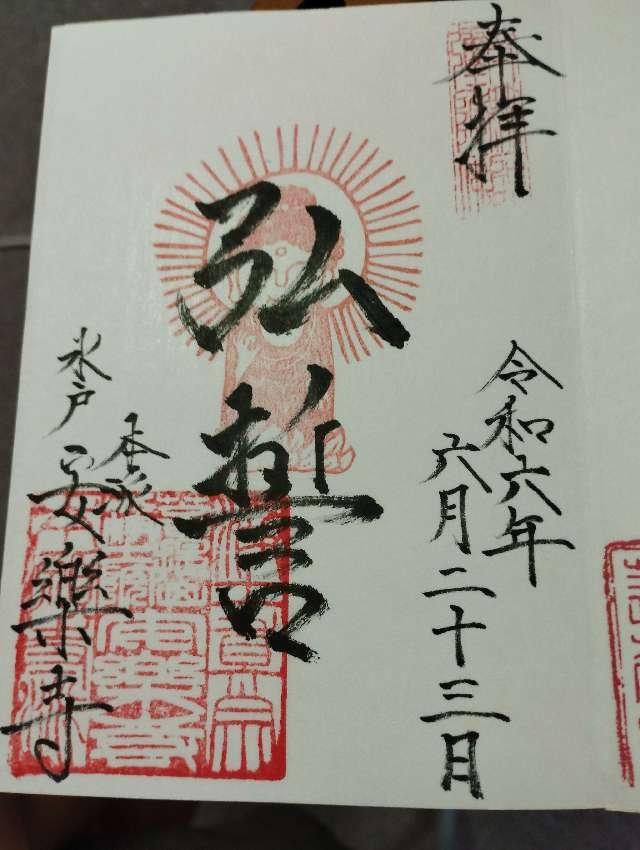 奉拝
令和六年
六月二十三日
弘誓
本派
水戸 安樂寺